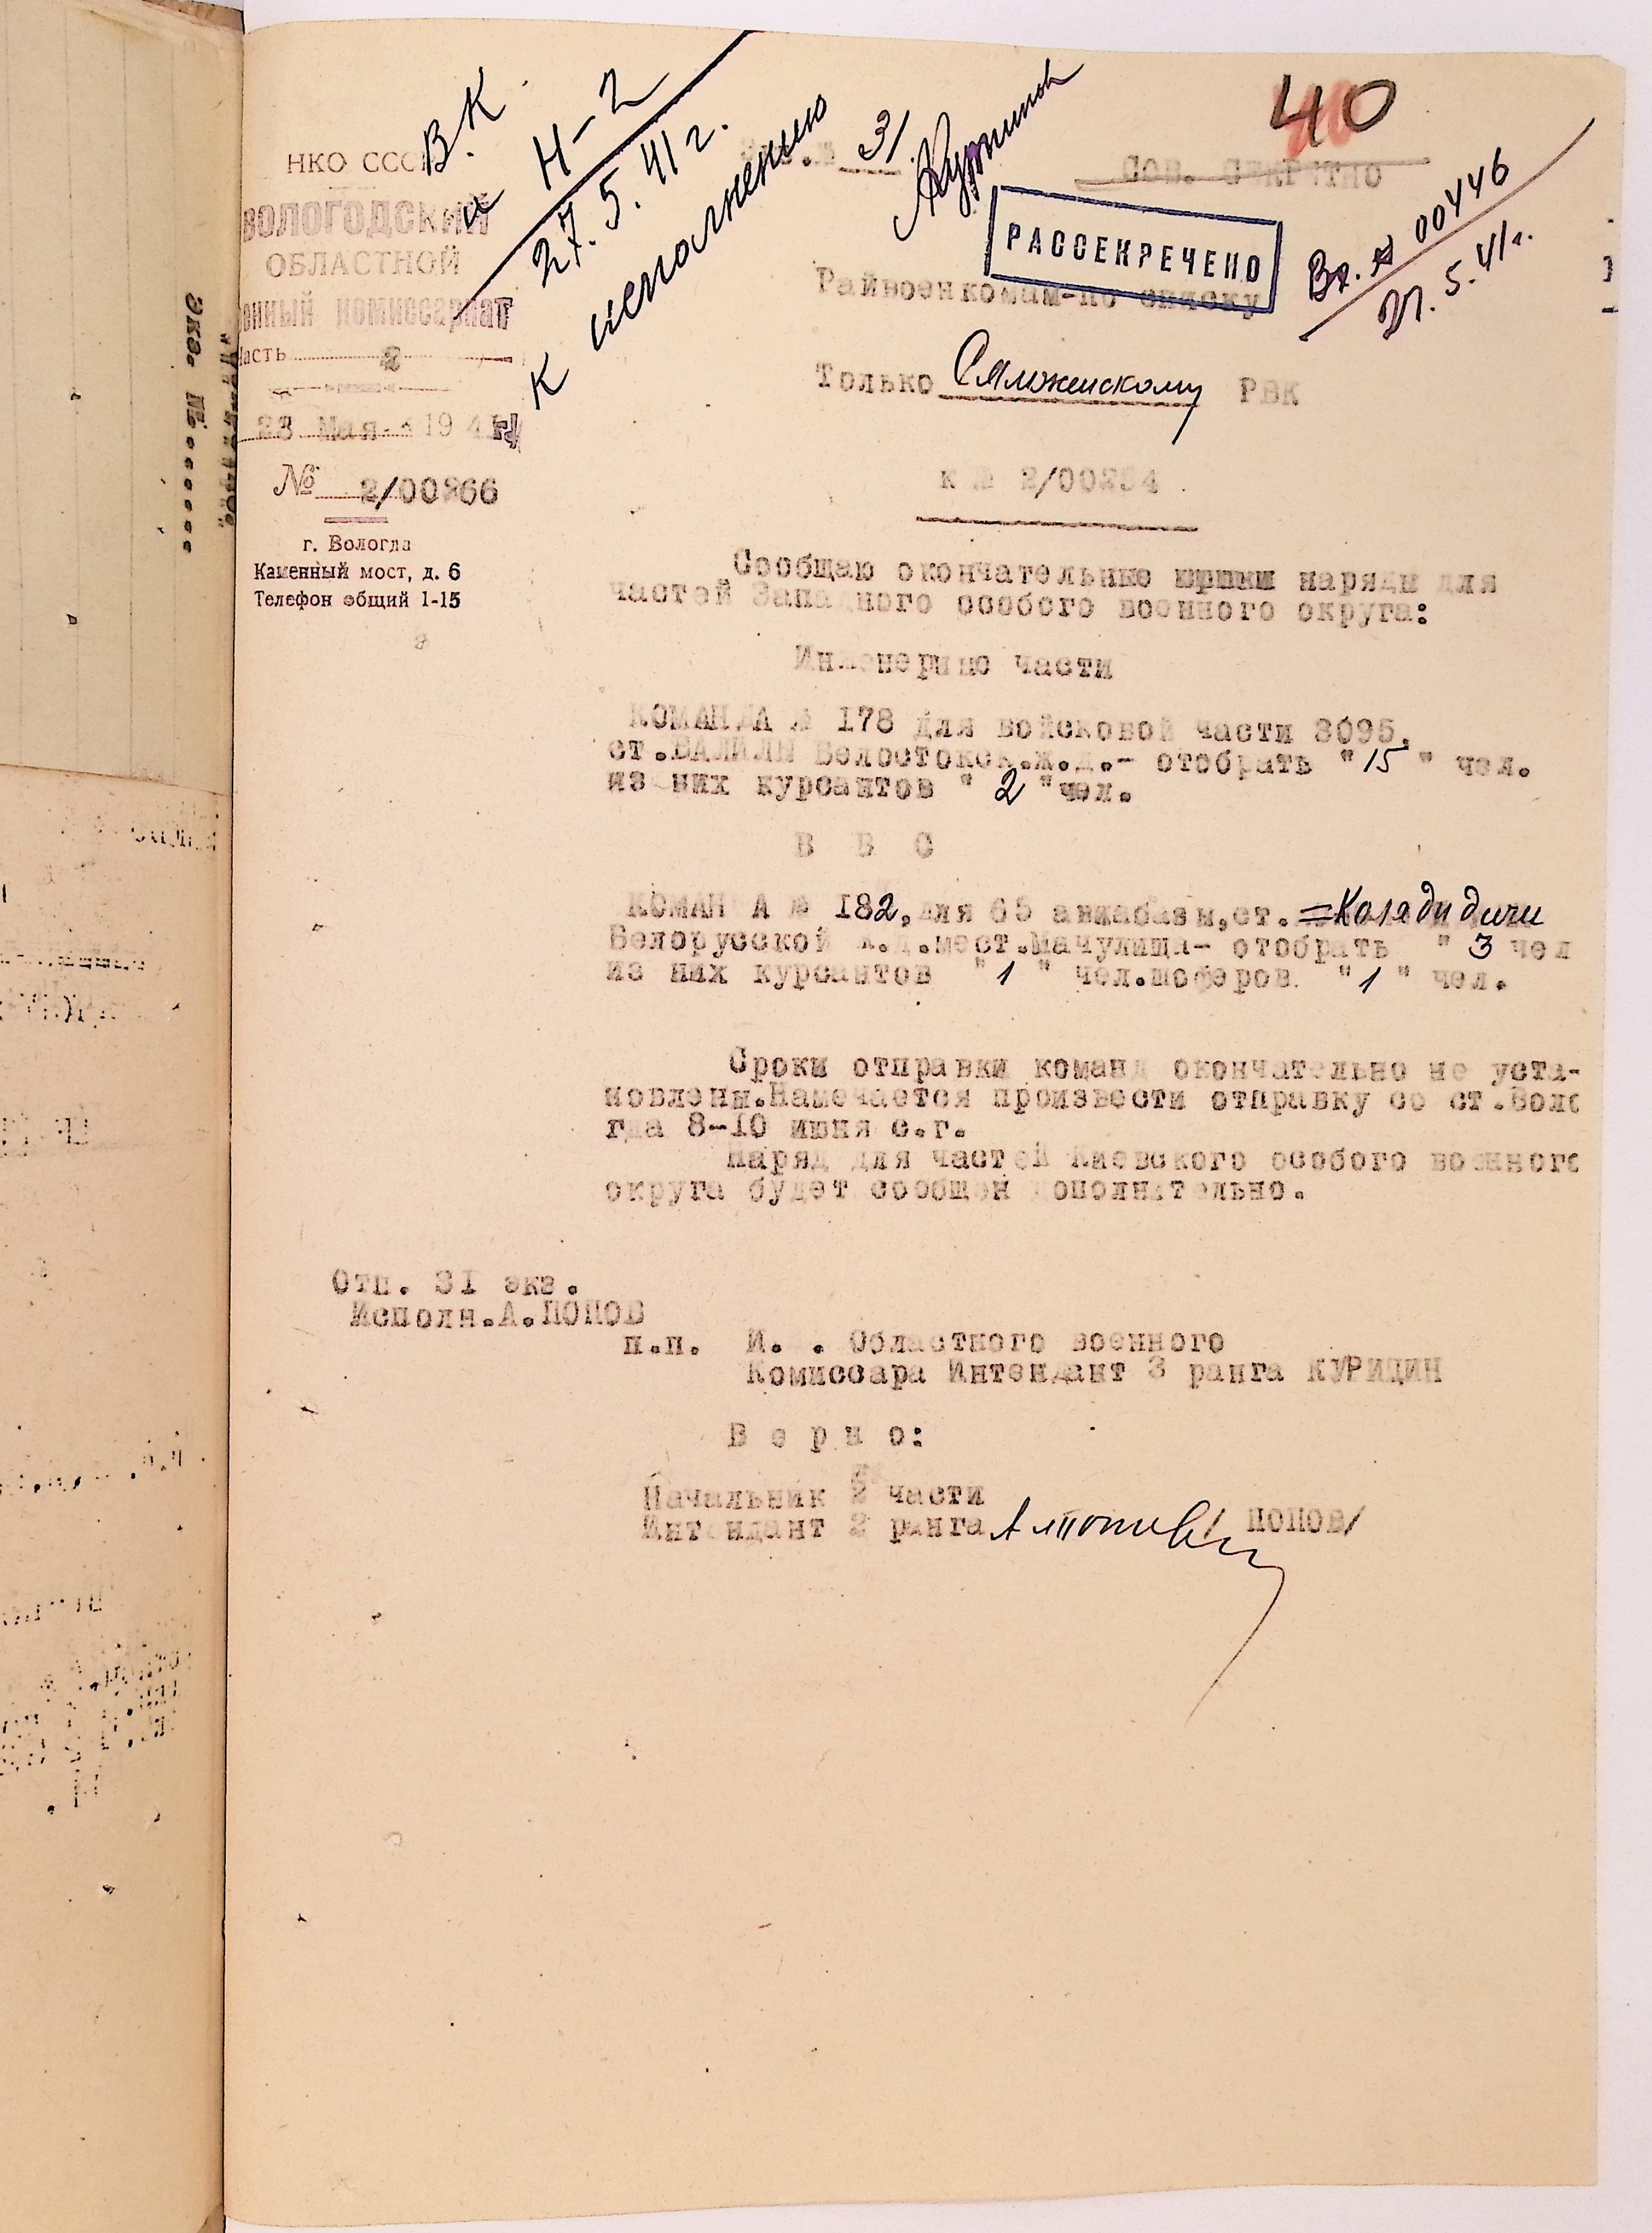 40
В.К
и Н-2
27.5.41 г.
к исполнению
НКО СССР
ВОЛОГОДСКИЙ
ОБЛАСТНОЙ
военный комиссариат
Часть 2
23 Мая 1941
№ 2/00266
г. Вологда
Каменный мост, д. 6
Телефон общий 1-15
Экз.№ 31
СОВ. СЕКРЕТНО
РАССЕКРЕЧЕНО
Вх. № 00446
27.5.41г.
Райвоенкомам-по списку
Только Сямженскому РВК
к № 2/00254
Сообщаю окончательные наряды для
частей Западного особого военного округа:
Инженерные части
КОМАНДА № 178 для войсковой части 3095,
ст.ВАЛИЛЫ Белостокск.ж.д.- отобрать "15" чел.
из них курсантов "2" чел.
В В С
КОМАНДА № 182, для 65 авиабазы, ст. Колядичи
Белорусской ж.д.мест.Мачулища- отобрать "3 чел
из них курсантов "1" чел.шоферов "1" чел.
Сроки отправки команд окончательно не уста-
новлены.Намечается произвести отправку со ст.Воло
гда 8-10 июня с.г.
Наряд для частей Киевского особого военного
округа будет сообщен дополнительно.
Отп. 31 экз.
Исполн.А.ПОПОВ
п.п. И. . Областного военного
Комиссара Интендант 3 ранга КУРИЦИН
В е р н о:
Начальник 2 части
Интендант 2 ранга /ПОПОВ/
Экз. №......